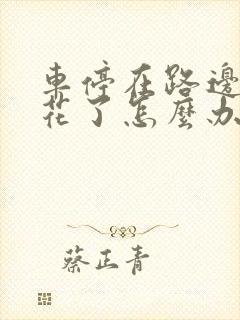 車停在路邊
花了怎麼办
蔡正青